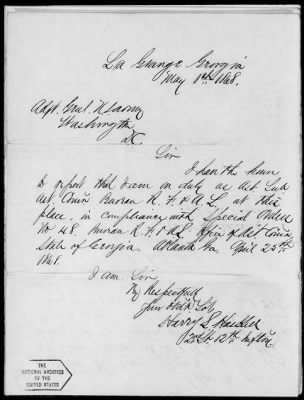 La Grange Georgia
May 1st 1868.
Adjt. Genl. U S Army
Washington
D.C.
Sir
I have the honor
to report that I am on duty as Act Sub
Ast. Comr Bureau R. F. & A. L, at this
place, in compliance with Special Orders
No 48. Bureau R. F & A L Office of Ast Comr
State of Georgia. Atlanta Ga. April 25th
1868.
I am Sir,
Very Respectfully
Your Obdt
Harry
THE
NATIONAL ARCHIVES
OF THE
UNITED STATES